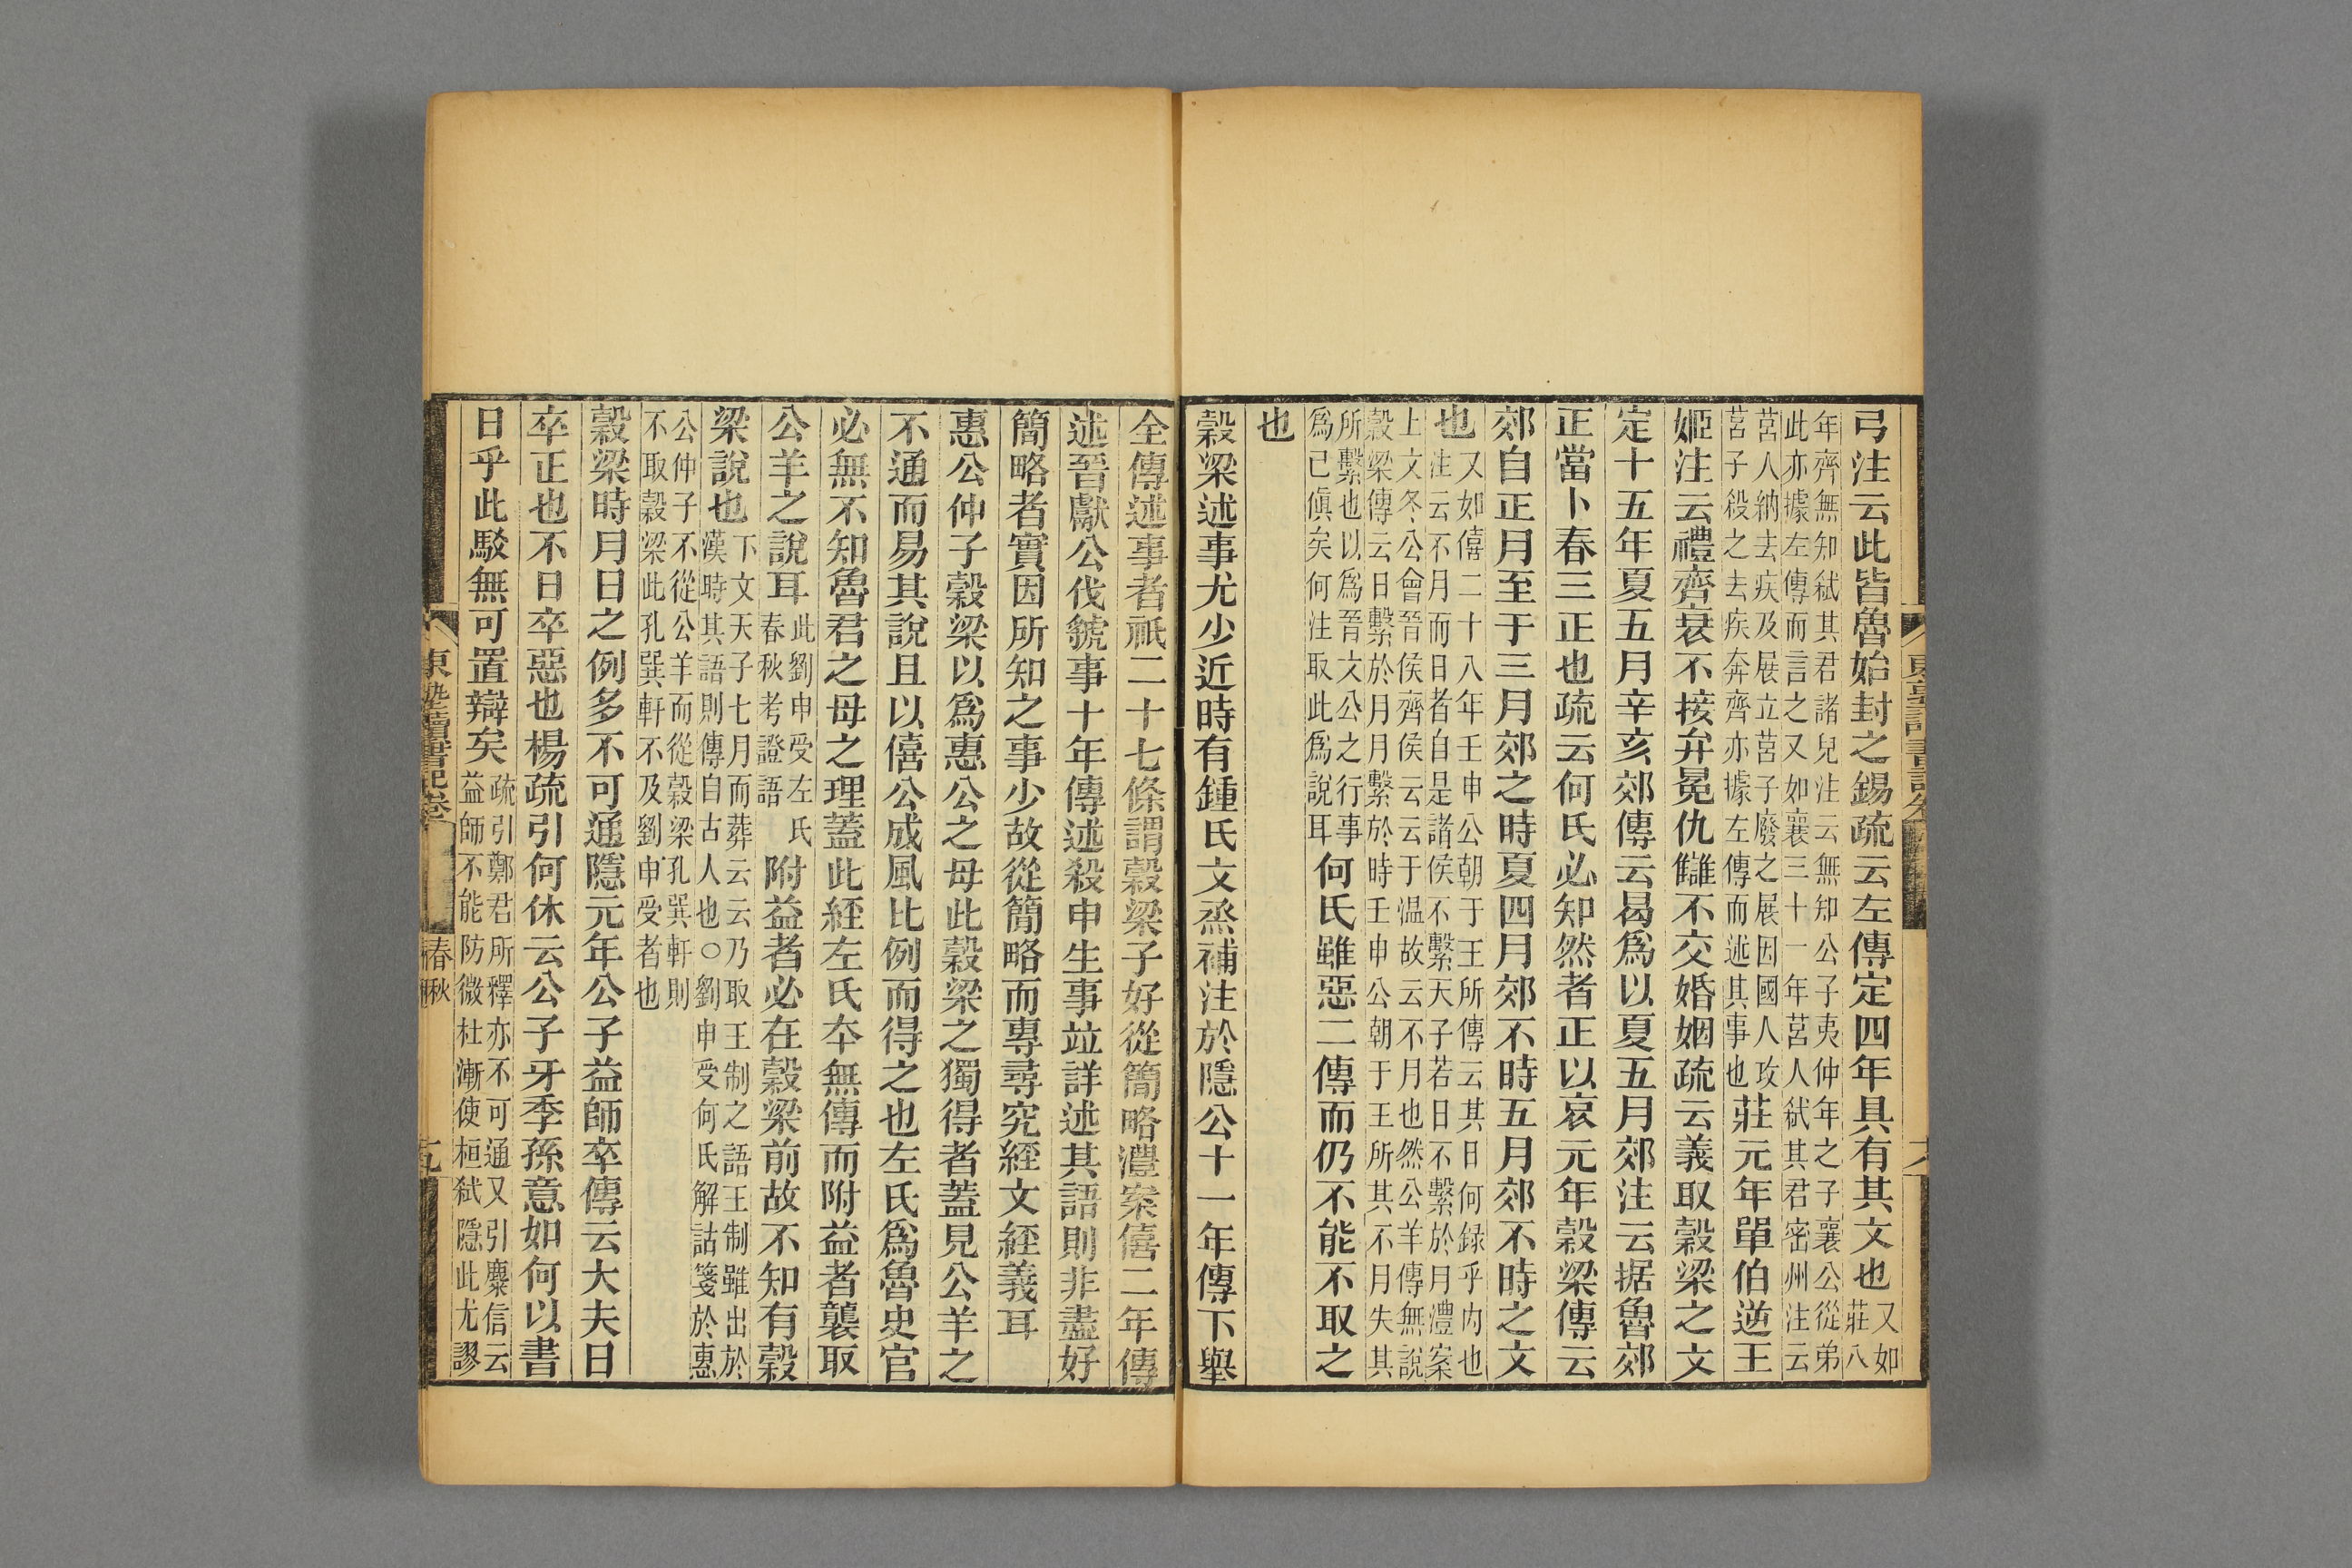 弓注云此皆魯始封之錫疏云左傳定四年具有其文也又如莊八
年齊無知弒其君諸兒注云無知公子夷仲年之子襄公從弟
此亦據左傳而言之又如襄三十一年莒人弒其君密州注云
莒人納去疾及展立莒子廢之展因國人攻
莒子殺之去疾奔齊亦據左傳而述其事也莊元年單伯逆王
姬注云禮齊衰不接弁冕仇讎不交婚姻疏云義取穀梁之文
定十五年夏五月辛亥郊傳云曷爲以夏五月郊注云据魯郊
正當卜春三正也疏云何氏必知然者正以哀元年穀梁傳云
郊自正月至于三月郊之時夏四月郊不時五月郊不時之文
也又如僖二十八年壬申公朝于王所傳云其日何録乎内也
注云不月而日者自是諸侯不繫天子若日不繫於月澧案
上文冬公會晉侯齊侯云云于温故云不月也然公羊傳無說
穀梁傳云日繫於月月繫於時壬申公朝于王所其不月失其
所繫也以爲晉文公之行事
爲已傎矣何注取此爲說耳何氏雖惡二傳而仍不能不取之
也
穀梁述事尤少近時有鍾氏文烝補注於隱公十一年傳下舉
全傳述事者祇二十七條謂穀梁子好從簡略澧案僖二年傳
述晉獻公伐虢事十年傳述殺申生事竝詳述其語則非盡好
簡略者實因所知之事少故從簡略而專尋究經文經義耳
惠公仲子穀梁以爲惠公之母此穀梁之獨得者蓋見公羊之
不通而易其說且以僖公成風比例而得之也左氏爲魯史官
必無不知魯君之母之理蓋此經左氏夲無傳而附益者襲取
公羊之說耳此劉申受左氏
春秋考證語附益者必在穀梁前故不知有穀
梁說也下文天子七月而葬云云乃取王制之語王制雖出於
漢時其語則傳自古人也○劉申受何氏解詁箋於惠
公仲子不從公羊而從穀梁孔巽軒則
不取穀梁此孔巽軒不及劉申受者也
穀梁時月日之例多不可通隱元年公子益師卒傳云大夫日
卒正也不日卒惡也楊疏引何休云公子牙季孫意如何以書
日乎此駁無可置辯矣疏引鄭君所釋亦不可通又引麋信云
益師不能防微杜漸使桓弒隱此尤謬
東塾讀書記卷
春秋